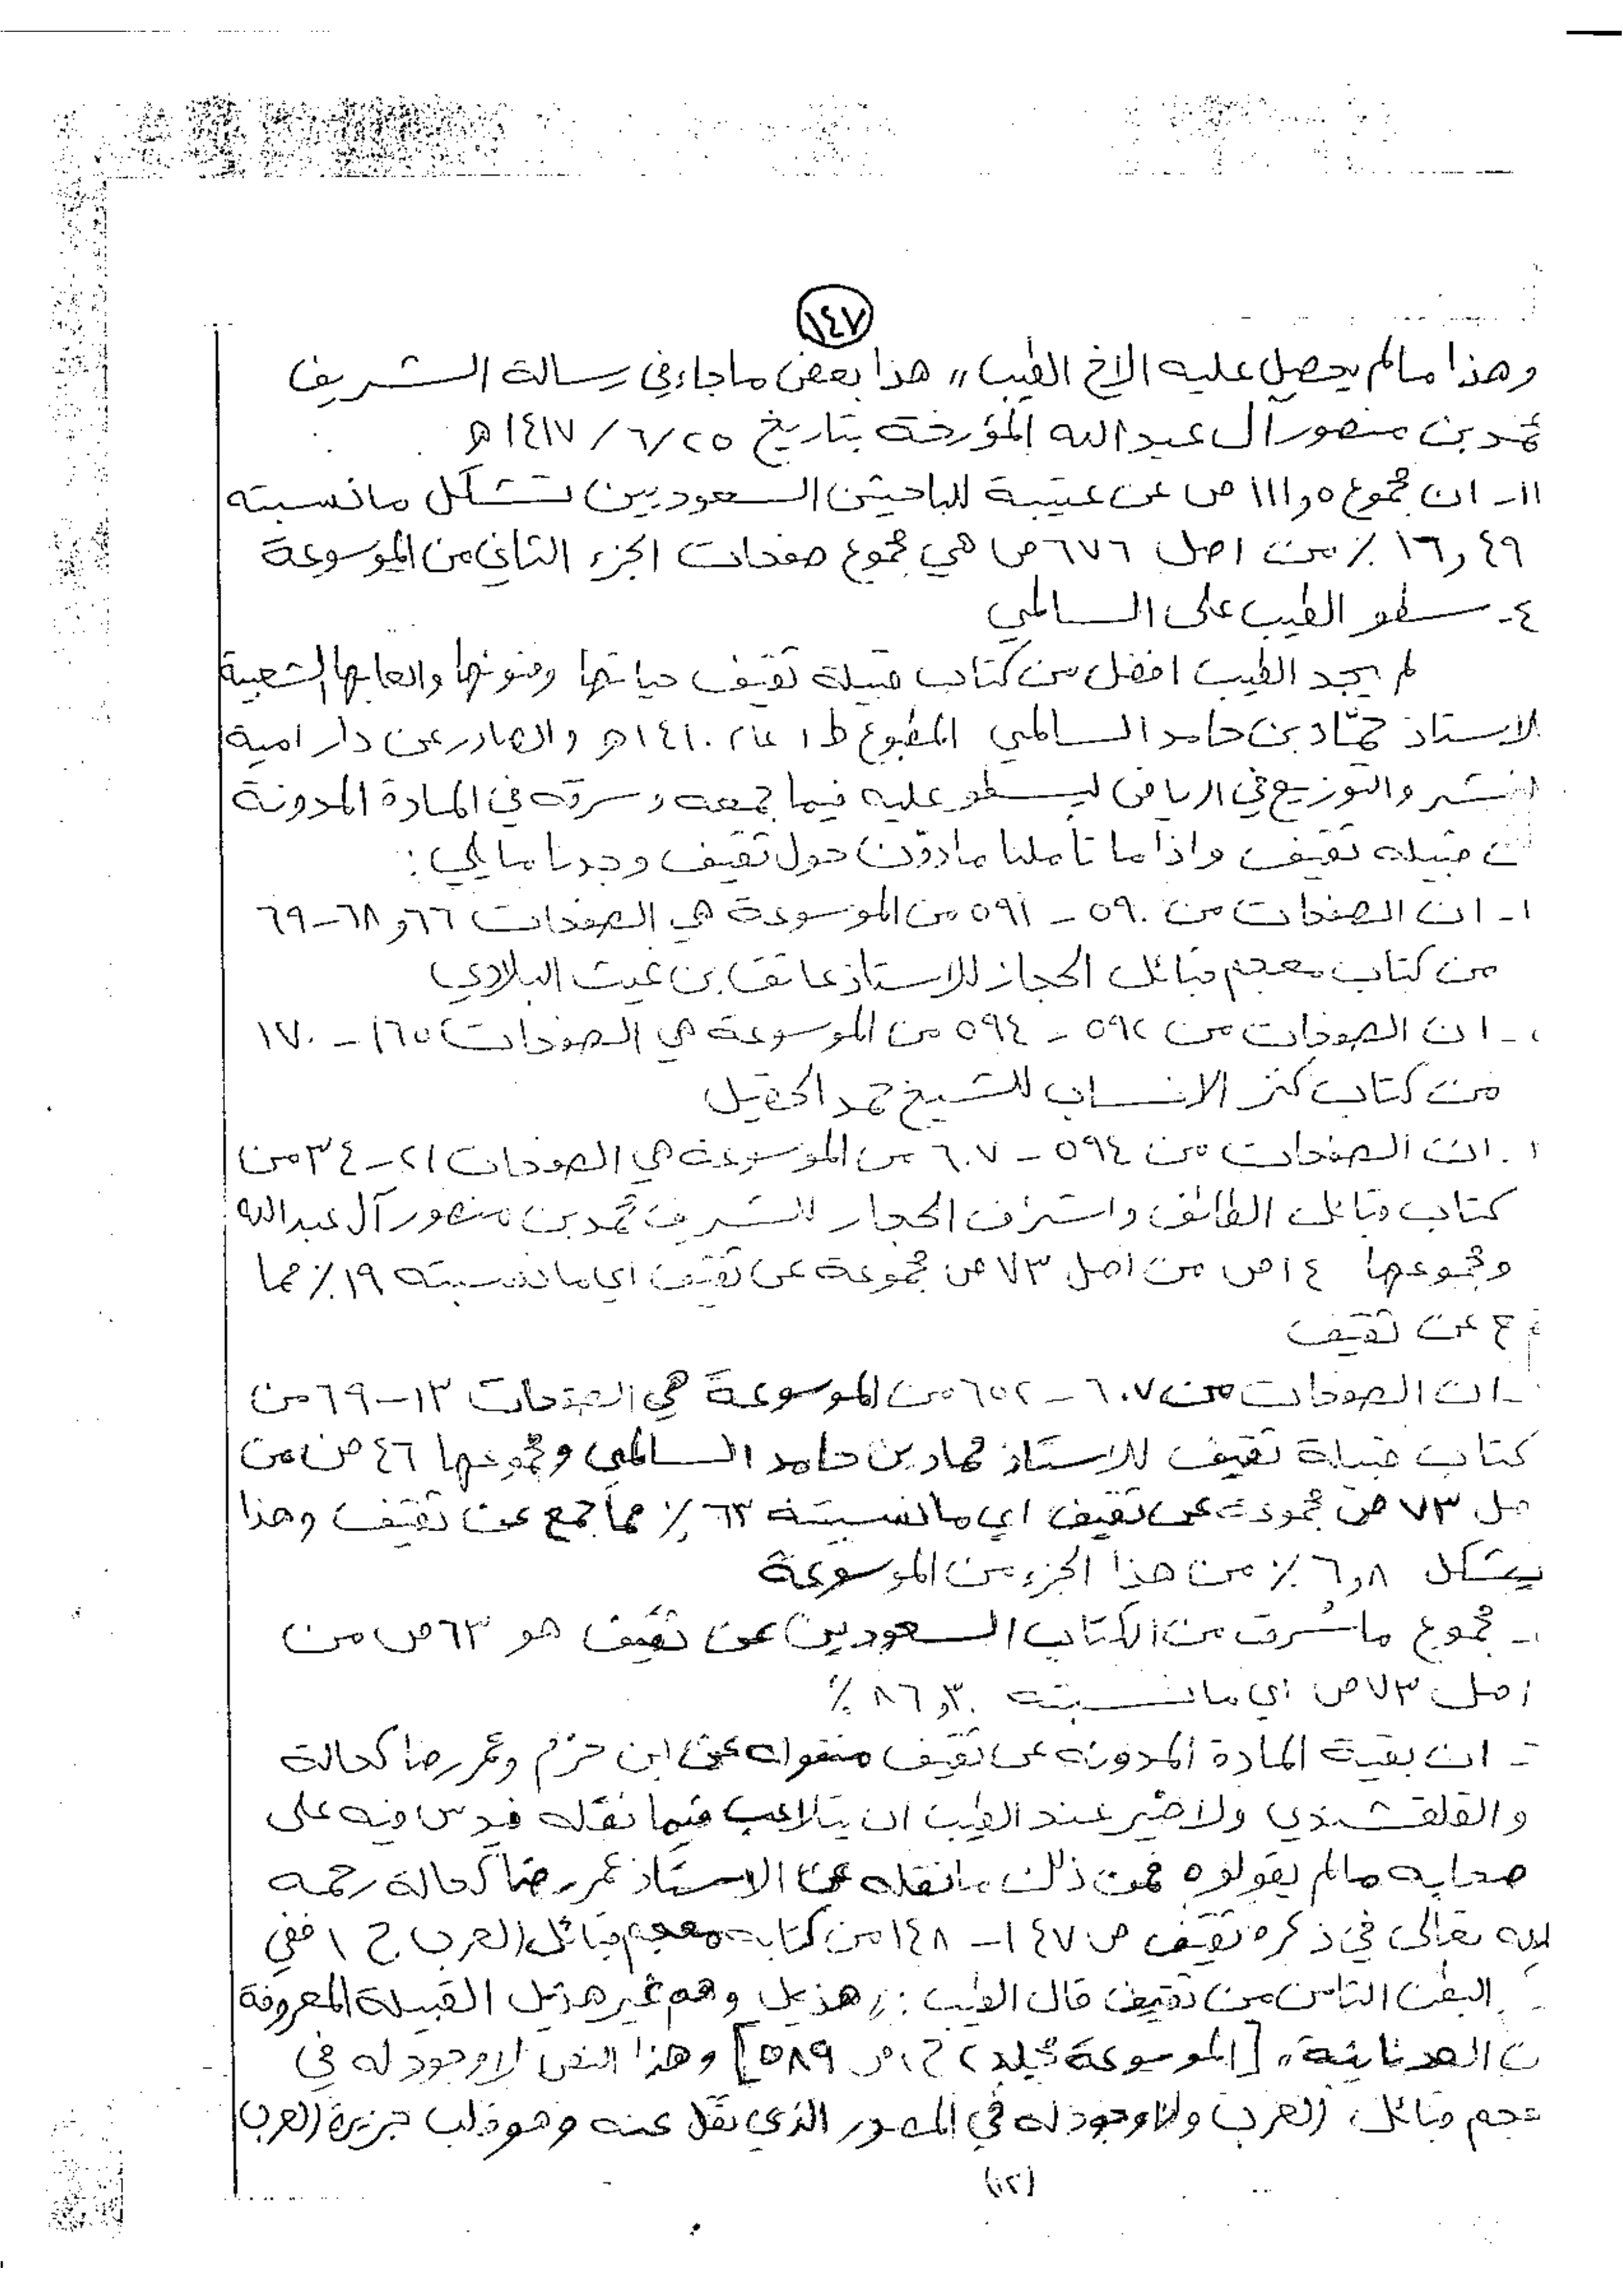 ١٤٧
وهذا مالم يحصل عليه الاخ الطيب،، هذا بعض ماجاء في رسالة الشريف
محمد بن منصور آل عبدالله المؤرخة بتاريخ ٢٥/٦/١٤١٧هـ
١١ـ ان مجموع ١١١,٥ ص عن عتيبة للباحثين السعوديين تشكل مانسبته
١٦,٤٩ ٪ من اصل ٦٧٦ص هي مجموع صفحات الجزء الثاني من الموسوعة
٤ـ سطو الطيب على السالمي
لم يجد الطيب افضل من كتاب قبيلة ثقيف حياتها وفنونها والعابها الشعبية
للاستاذ حمّاد بن حامد السالمي المطبوع ط١ عام ١٤١٠هـ والصادر عن دار امية
للنشر والتوزيع في الرياض ليسطو عليه فيما جمعه وسرقه في المادة المدونة
عن قبيله ثقيف واذا ما تأملنا مادوّن حول ثقيف وجدنا مايلي:
١ـ ان الصفحات من ٥٩٠ ـ ٥٩١ من الموسوعة هي الصفحات ٦٦و ٦٨ـ٦٩
من كتاب معجم قبائل الحجاز للاستاذ عاتق بن غيث البلادي
ـ ان الصفحات من ٥٩٢ ـ ٥٩٤ من الموسوعة هي الصفحات ١٦٥ ـ ١٧٠
من كتاب كنز الانساب للشيخ حمد الحقيل
ـ ان الصفحات من ٥٩٤ ـ ٦٠٧ من الموسوعة هي الصفحات ٢١ـ٣٤ من
كتاب قبائل الطائف واشراف الحجاز للشريف محمد بن منصور آل عبدالله
ومجموعها ١٤ص من اصل ٧٣ص مجموعة عن ثقيف اي مانسبته ١٩٪ مما
جمع عن ثقيف
ـ ان الصفحات من ٦٠٧ ـ ٦٥٢ من الموسوعة هي الصفحات ١٣ـ٦٩ من
كتاب قبيلة ثقيف للاستاذ حماد بن حامد السالمي ومجموعها ٤٦ ص من
اصل ٧٣ ص مجموعة عن ثقيف اي مانسبته ٦٣٪ مما جمع عن ثقيف وهذا
يشكل ٦,٨ ٪ من هذا الجزء من الموسوعة
ـ مجموع ماسُرق من الكتاب السعوديين عن ثقيف هو ٦٣ص من
اصل ٧٣ص اي مانسبته ٨٦,٣٠ ٪
ـ ان بقية المادة المدونه عن ثقيف منقوله عن ابن حزم وعمر رضا كحالة
والقلقشندي ولاضير عند الطيب ان يتلاعب فيما نقله فيدس فيه على
صحابه مالم يقولوه فمن ذلك مانقله عن الاستاذ عمر رضا كحالة رحمه
الله تعالى في ذكره ثقيف ص ١٤٧ـ ١٤٨ من كتابه معجم قبائل العرب ج ١ ففي
البطن الثامن من ثقيف قال الطيب: ,,هذيل وهم غير هذيل القبيلة المعروفة
من العدنانية،، [الموسوعة مجلد ٢ ج١ ص ٥٨٩] وهذا النص لاوجود له في
معجم قبائل العرب ولاوجود له في المصدر الذي نقل عنه وهو قلب جزيرة العرب
(١٢)